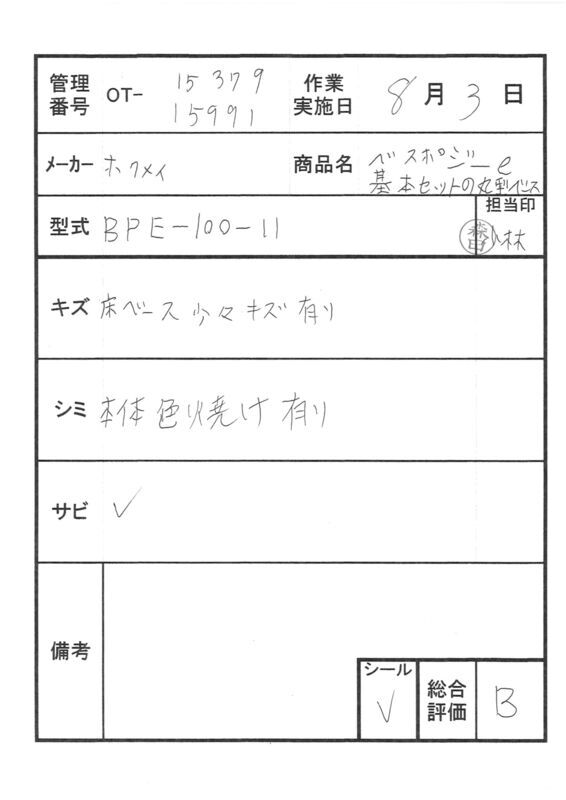 管理番号 OT- 15379
15991
作業実施日 8月3日
メーカー ホクメイ
商品名 ベスポジーe
基本セットの丸型ベース
型式 BPE-100-11
担当印 森田 小林
キズ 床ベース 少々キズ有り
シミ 本体色焼け有り
サビ ✓
備考
シール ✓
総合評価 B